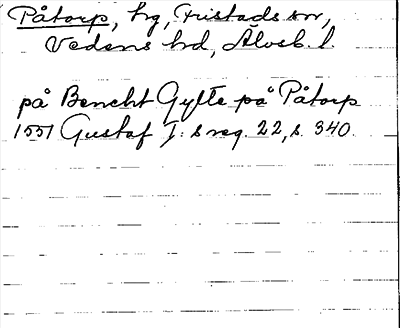 Påtorp, hg, Fristads sn,
Vedens hd, Älvsb. l.
på Bencht Gylte på Påtorp
1551 Gustaf I: s reg. 22, s. 340.